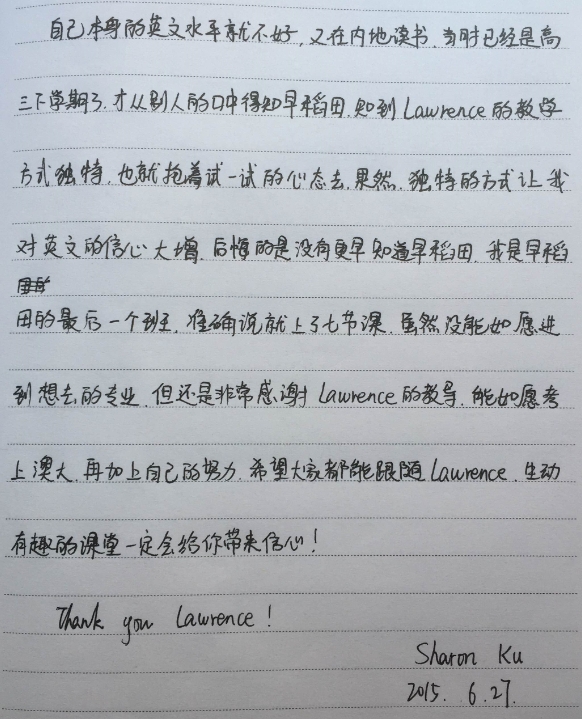 自己本身的英文水平就不好，又在内地读书，当时已经是高
三下学期了，才从别人的口中得知早稻田，知到Lawrence的教学
方式独特，也就抱着试一试的心态去，果然，独特的方式让我
对英文的信心大增，后悔的是没有更早知道早稻田，我是早稻
田的最后一个班，准确说就上了七节课，虽然没能如愿进
到想去的专业，但还是非常感谢Lawrence的教导，能如愿考
上澳大，再加上自己的努力，希望大家都能跟随Lawrence，生动
有趣的课堂一定会给你带来信心！
Thank you Lawrence！
Sharon Ku
2015. 6.27.